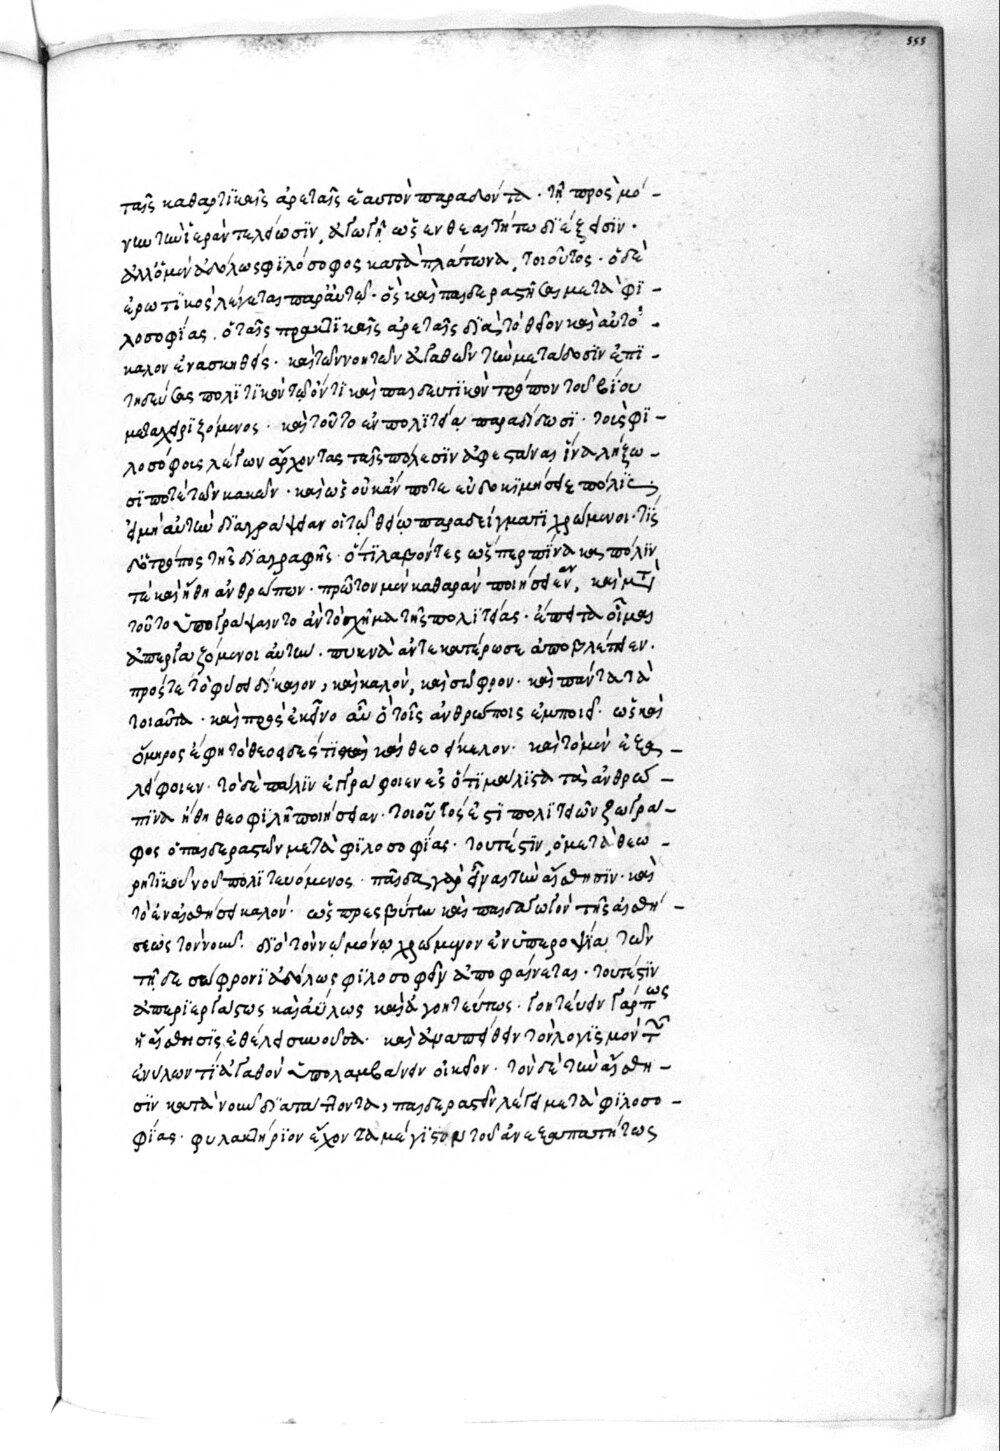 555
ταῖς καθαρτϊκαῖς ἀρεταῖς ἑαυτὸν παραδόντα · τῇ πρὸς μό –
γω τῶν ἱερὰν τελείωσϊν, ἀγωγῇ ὡς ἐν θεαιτήτω διέξεισϊν ·
ἀλλ' ὁ μὲν ἀδόλως φϊλόσοφος κατὰ πλάτωνα, τοιοῦτος · ὁ δὲ
ἐρωτϊκὸς λέγεται παρ' αὐτῶ · ὃς καὶ παιδεραστήσας μετὰ φϊ –
λοσοφίας · ὁ ταῖς πρακτϊκαῖς ἀρεταῖς δϊὰ τὸ θεῖον καὶ αὐτό –
καλον ἐνασκηθείς · καὶ τῶν νοητῶν ἀγαθῶν τὴν μετάδοσϊν ἐπϊ –
τηδεύσας πολϊτϊκὸν τῷ ὄντϊ καὶ παιδευτϊκὸν τρόπον τοῦ βίου
μεταχειρϊζόμενος · καὶ τοῦτο ἐν πολϊτείᾳ παραδίδωσϊ · τοὺς φϊ –
λοσόφοις λέγων ἄρχοντας ταῖς πόλεσϊν ἀφεστάναι ἵνα λήξω –
σϊ ποτὲ τῶν κακῶν · καὶ ὡς οὐκ ἄν ποτε εὐδοκϊμήσειε πόλϊς
εἰ μὴ αὐτὴν δϊαγράψειαν οἱ τῷ θείῳ παραδείγματϊ χρώμενοι · τίς
δὲ ὁ τρόπος τῆς δϊαγραφῆς · ὅτϊ λαβόντες ὥσπερ πίνακα πόλϊν
τὲ καὶ ἤθη ἀνθρώπων · πρῶτον μὲν καθαρὰν ποιήσειεν αν, καὶ μετὰ
τοῦτο ὑπογράψαιντο ἂν τὸ σχῆμα τῆς πολϊτείας · ἔπειτα οἶμαι
ἀπεργαζόμενοι αὐτὴν · πυκνὰ ἂν ἑκατέρωσε ἀποβλέποιεν ·
πρός τε τὸ φύσει δίκαιον, καὶ καλὸν, καὶ σῶφρον · καὶ πάντα τὰ
τοιαῦτα · καὶ πρὸς ἐκεῖνο αὖ ὃ τοῖς ἀνθρώποις ἐμποιεῖ · ὡς καὶ
ὅμηρος ἔφη τὸ θεοειδές τϊ καὶ θεοείκελον · καὶ τὸ μὲν ἐξα –
λείφοιεν · τὸ δὲ πάλϊν ἐγγράφοιεν ἕως ὅτϊ μάλϊστα τὰ ἀνθρώ –
πϊνα ἤθη θεοφϊλῆ ποιήσειαν · τοιοῦτός ἐστϊ πολϊτειῶν ζωγρά –
φος ὁ παιδεραστῶν μετὰ φϊλοσοφίας · τουτέστϊν, ὁ μετὰ θεω –
ρητϊκοῦ νοῦ πολϊτευόμενος · παῖδα γὰρ εἶναι τὴν αἴσθησϊν · καὶ
τὸ ἐν αἰσθήσει καλόν · ὡς πρεσβύτην καὶ παιδαγωγὸν τῆς αἰσθή –
σεως τὸν νοῦν · δϊὸ τὸν νῷ μόνῳ χρώμενον ἐν ὑπεροψίᾳ τῶν
τῇδε σωφρονϊ ἀδόλως φϊλοσοφεῖν ἀποφαίνεται · τουτέστϊν
ἀπερϊεργάστως καὶ ἀΰλως καὶ ἀγοητεύτως · γοητεύειν γάρ πως
ἡ αἴσθησϊς ἐθέλει σϊνοῦσα · καὶ ἀναπείθειν τὸν λογϊσμὸν τῶν
ἐνύλων τϊ ἀγαθὸν ὑπολαμβάνειν οἰκεῖον · τὸν δὲ τὴν αἴσθη –
σϊν κατὰ νοῦν δϊαπλάττοντα, παιδεραστεῖν λέγει μετὰ φϊλοσο –
φίας · φυλακτήρϊον ἔχοντα μέγϊστον τοῦ ἀνεξαπατήτως